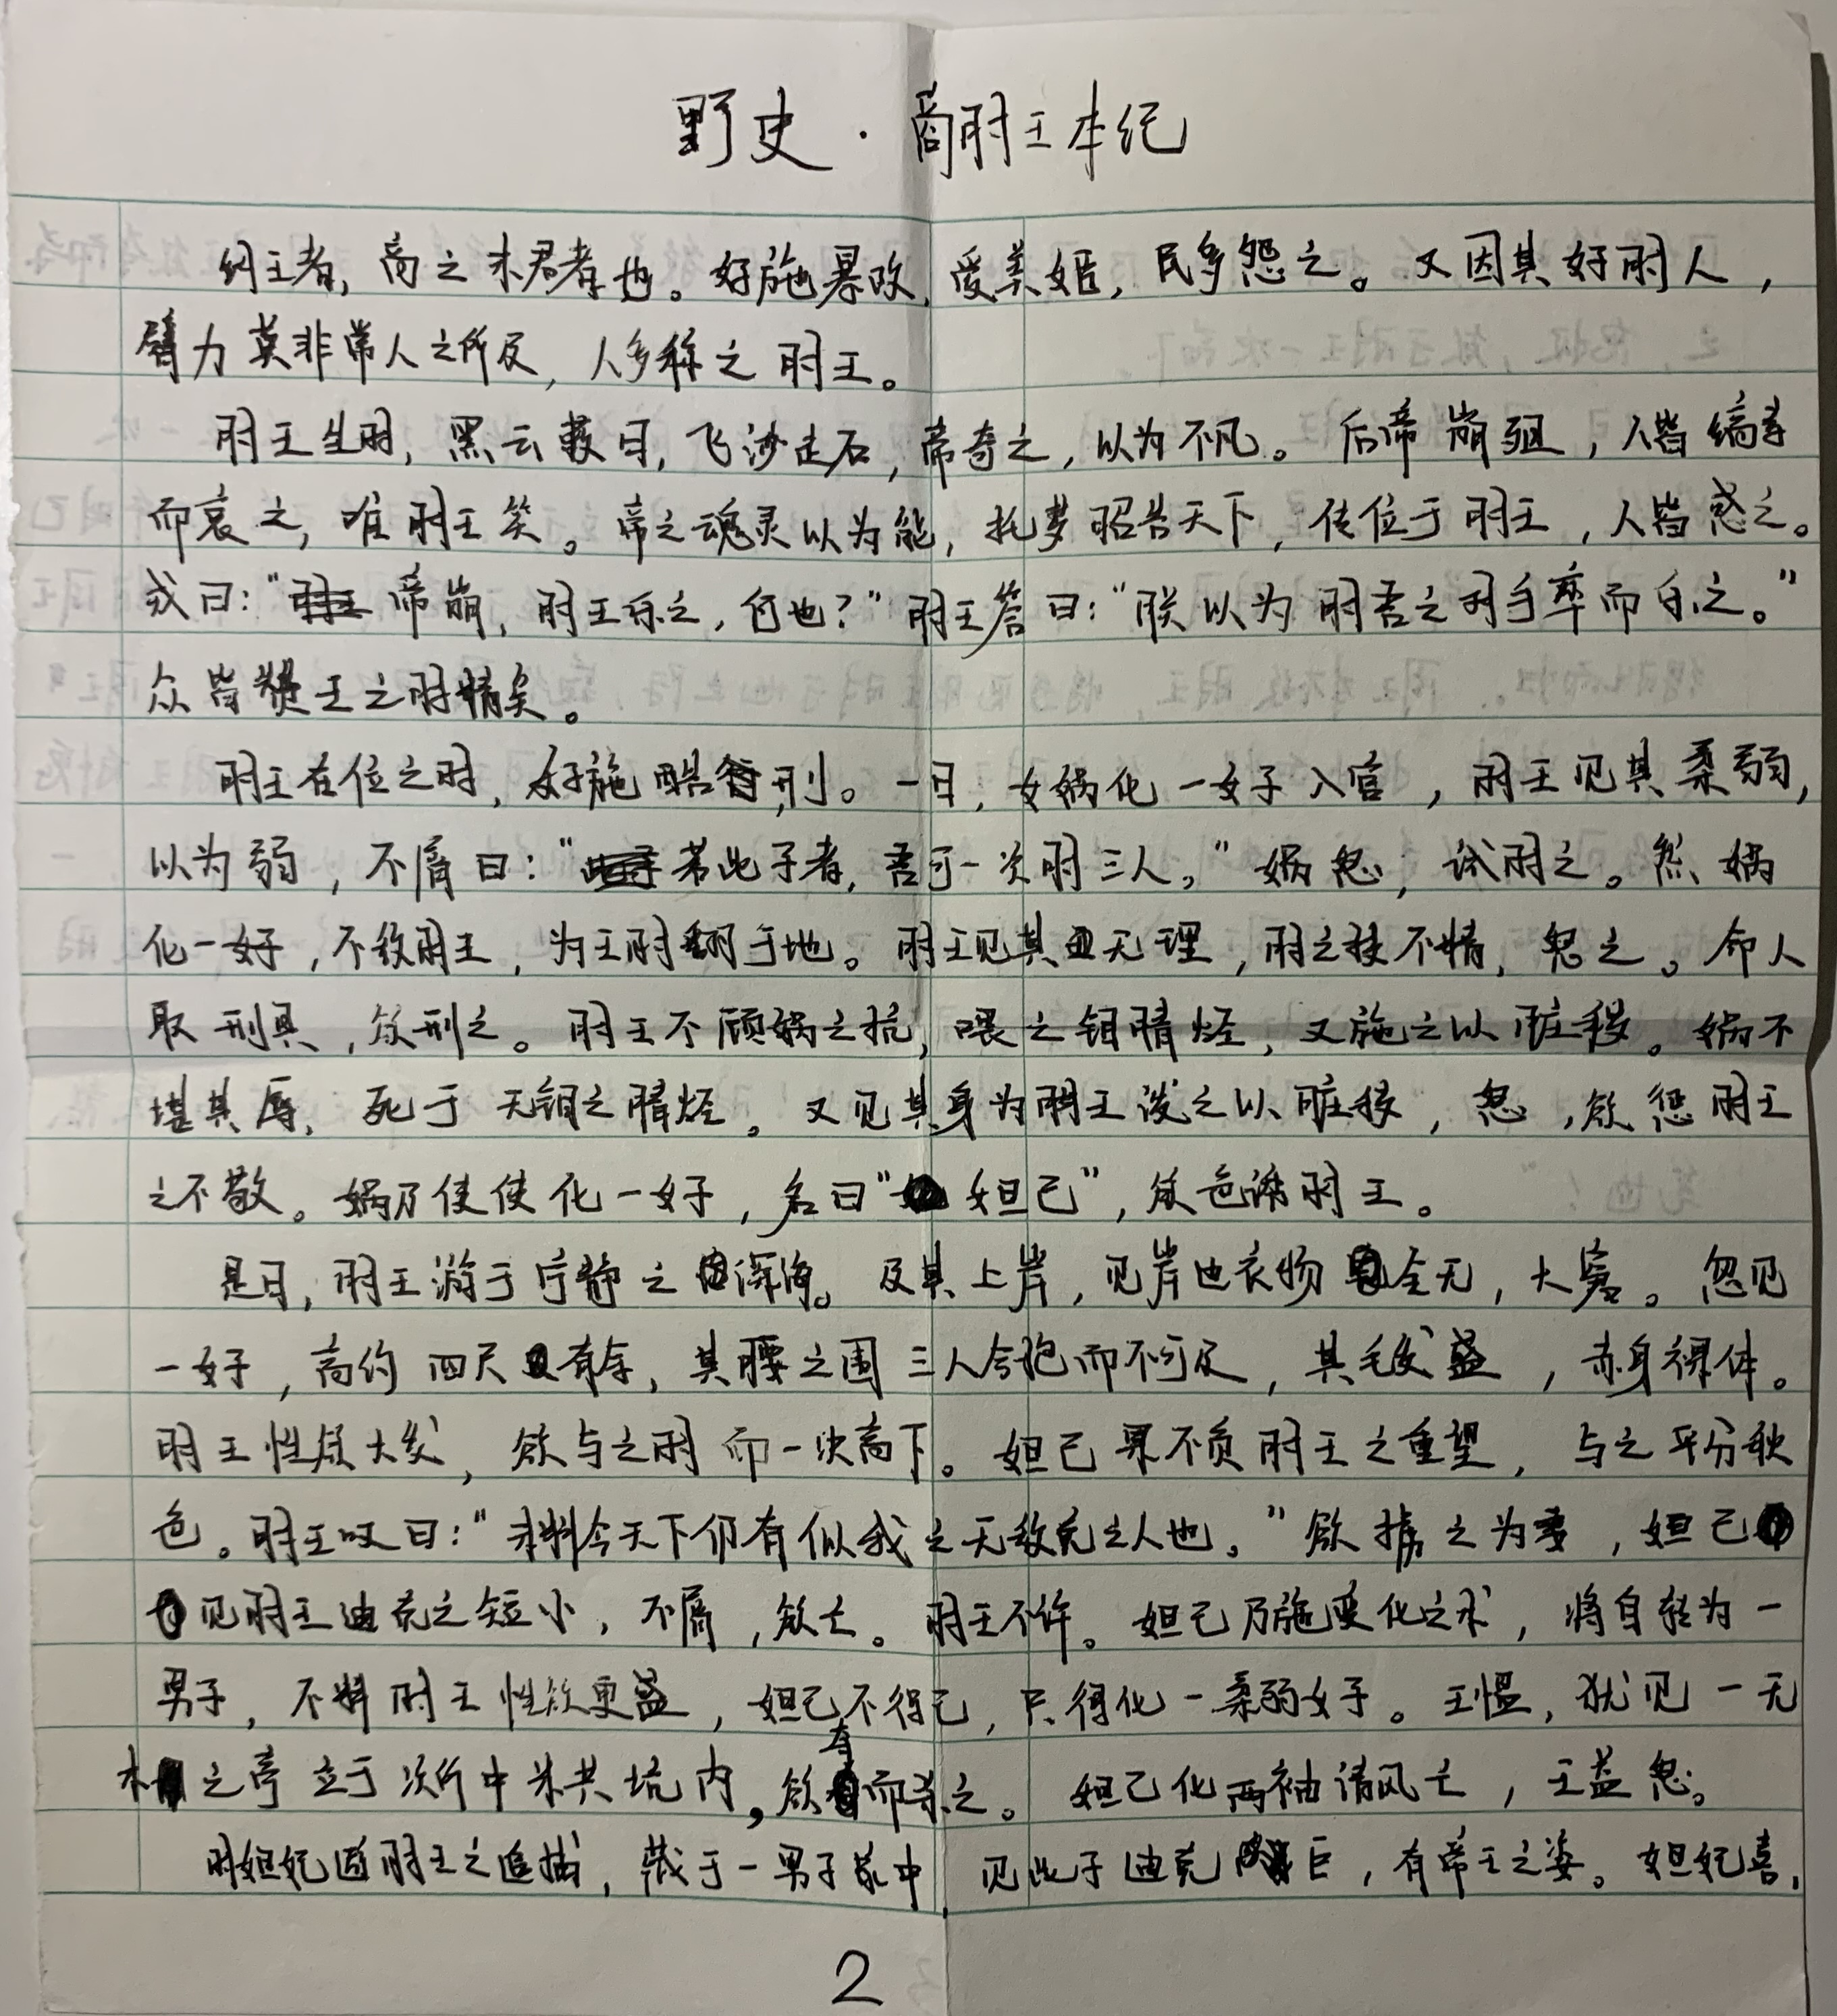 野史·商肘王本纪
纣王者,商之末君者也。好施暴政,爱美姬,民多怨之。又因其好肘人,
臂力莫非常人之所及,人多称之肘王。
肘王生时,黑云蔽日,飞沙走石,帝奇之,以为不凡。后帝崩殂,人皆缟素
而哀之,唯肘王笑。帝之魂灵以为能,托梦昭告天下,传位于肘王,人皆惑之。
或曰:“帝崩,肘王乐之,何也?”肘王答曰:“朕以为肘吾之对手率而乐之。”
众皆疑王之肘精矣。
肘王在位之时,好施酷刑。一日,女娲化一女子入宫,肘王见其柔弱,
以为弱,不屑曰:“若此子者,吾可一次肘三人。”娲怒,试肘之。然娲
化一女子,不敌肘王,为王肘翻于地。肘王见其无理,肘之技不精,怒之。命人
取刑具,欲刑之。肘王不顾娲之抗,喂之钼腈烃,又施之以脏秽。娲不
堪其辱,死于无钼之腈烃。又见其身为肘王泼之以脏秽,怒,欲惩肘王
之不敬。娲乃使使化一女子,名曰“妲己”,欲色诱肘王。
是日,肘王游于宁静之深海。及其上岸,见岸边衣物全无,大窘。忽见
一女子,高约四尺有余,其腰之围三人合抱而不可及,其毛发盛,赤身裸体。
肘王性欲大发,欲与之肘而一决高下。妲己果不负肘王之重望,与之平分秋
色。肘王叹曰:“未料今天下仍有似我之无敌克之人也。”欲掳之为妻,妲己
见肘王迪克之短小,不屑,欲亡。肘王不许。妲己乃施变化之术,将自转为一
男子,不料肘王性欲更盛,妲己不得已,只得化一柔弱女子。王愠,犹见一无
木之亭立于厕所中米共坑内,欲弃而杀之。妲己化两袖清风亡,王益怒。
时妲妃逃肘王之追捕,藏于一男子家中,见此子迪克巨,有帝王之姿。妲妃喜,
2